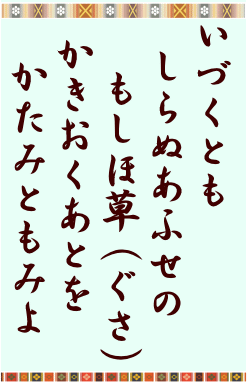 いづくとも
しらぬあふせの
もしほ草（ぐさ）
かきおくあとを
かたみともみよ